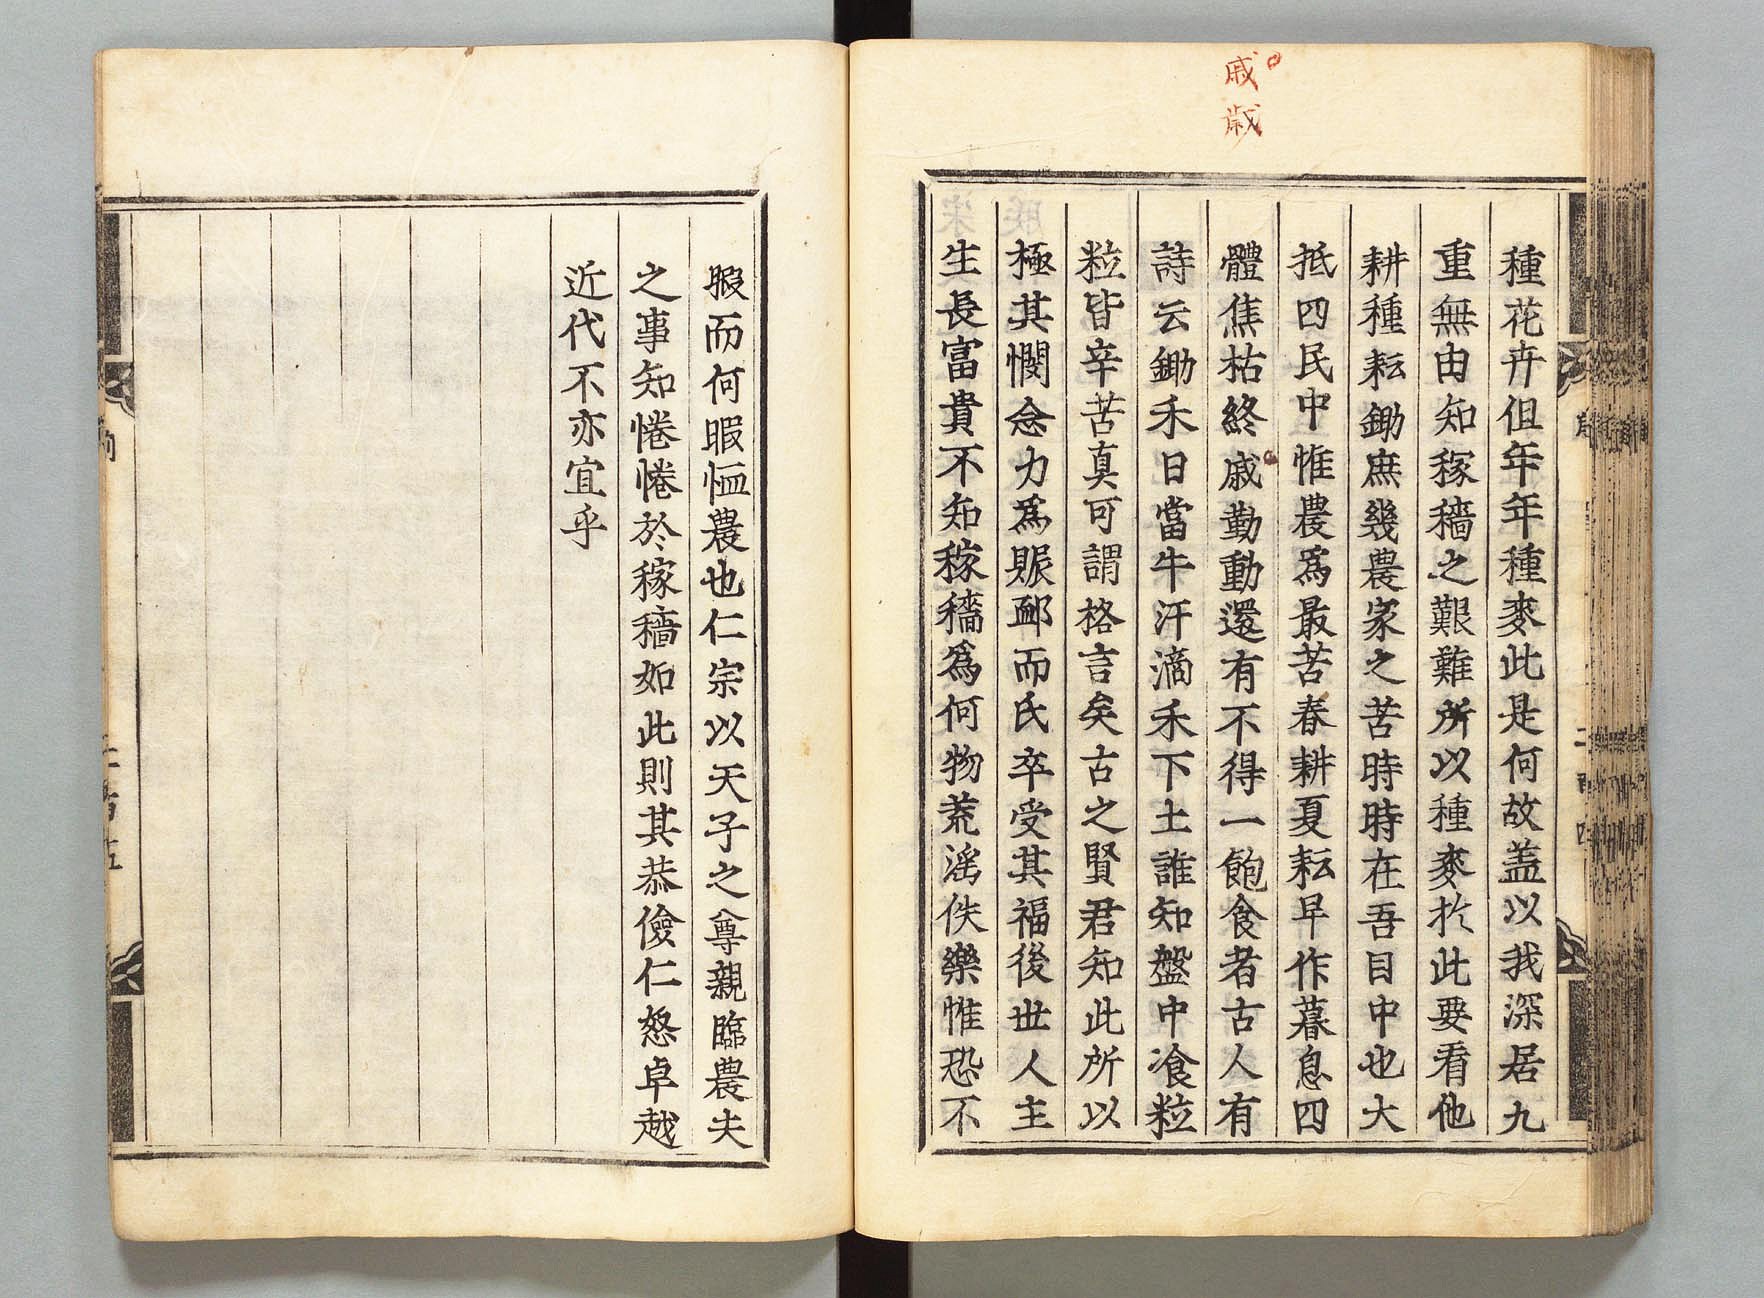 戚
歳
種花卉但年年種麥此是何故盖以我深居九
重無由知稼穡之艱難所以種麥於此要看他
耕種耘鋤庶幾農家之苦時時在吾目中也大
抵四民中惟農爲最苦春耕夏耘早作暮息四
體焦枯終戚勤動還有不得一飽食者古人有
詩云鋤禾日當牛汗滴禾下土誰知盤中飡粒
粒皆辛苦真可謂格言矣古之賢君知此所以
極其憫念力爲賑䘏而氏卒受其福後世人主
生長富貴不知稼穡爲何物荒淫佚樂惟恐不
暇而何暇恤農也仁宗以天子之尊親臨農夫
之事知惓惓於稼穡如此則其恭儉仁怒卓越
近代不亦宜乎